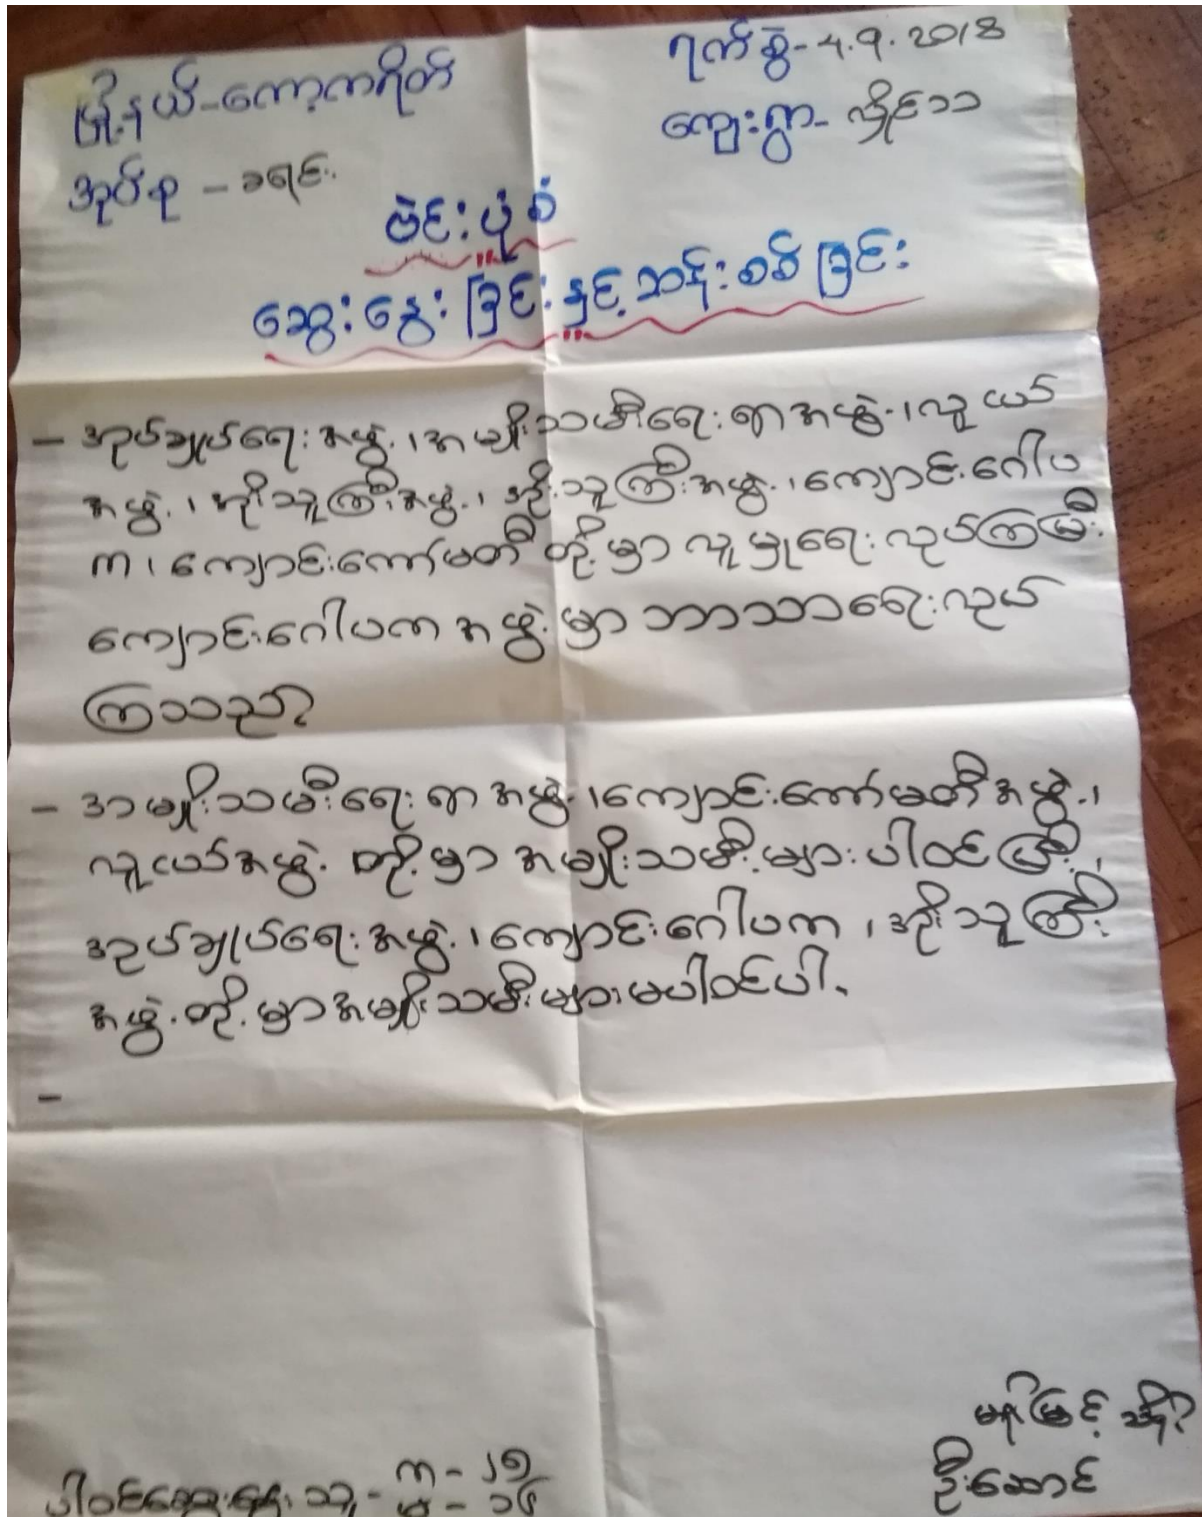 မြို့နယ်-ကော့ကရိတ်
ရက်စွဲ-4.9.2018
ကျေးရွာ-လှိုင်သာ
အုပ်စု - ခရင်း
ဗဲင်းပုံစံ
ဆွေးနွေးခြင်းနှင့်ဆန်းစစ်ခြင်း
- အုပ်ချုပ်ရေးအဖွဲ့၊အမျိုးသမီးရေးရာအဖွဲ့၊လူငယ်
အဖွဲ့၊ ကိုးသူကြီးအဖွဲ့၊ အိုးသူကြီးအဖွဲ့၊ကျောင်းဂေါပ
က၊ ကျောင်းကော်မတီတို့မှာ လူမှုရေးလုပ်ကြပြီး
ကျောင်းဂေါပကအဖွဲ့မှာ ဘာသာရေးလုပ်
ကြသည်။
- အမျိုးသမီးရေးရာအဖွဲ့၊ကျောင်းကော်မတီအဖွဲ့၊
လူငယ်အဖွဲ့ တို့မှာ အမျိုးသမီးများပါဝင်ပြီး၊
အုပ်ချုပ်ရေးအဖွဲ့၊ကျောင်းဂေါပက၊အိုးသူကြီး
အဖွဲ့တို့မှာအမျိုးသမီးများမပါဝင်ပါ။
-
ပါဝင်ဆွေးနွေးသူ- က - ၂၅
မ - ၁၆
ဦးဆောင်